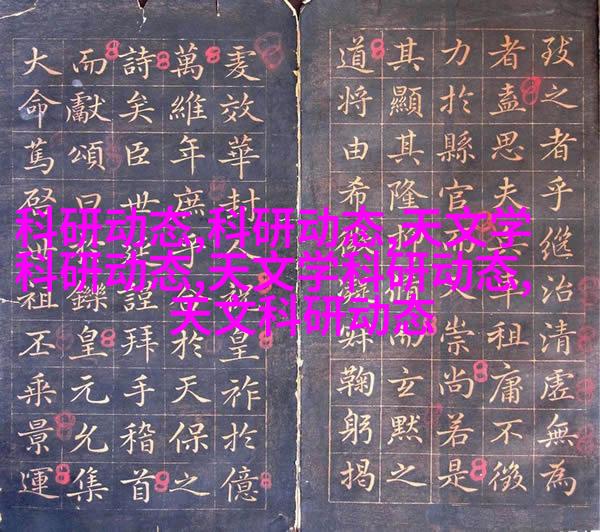 科研动态,科研动态,天文学
科研动态,天文学科研动态,
天文科研动态
致之者乎継治清虛無為
者盍思夫祖庸不徵
力於縣官崇尚若是
其顯其隆而玄默之
道將由希鞠躬揭
效華封皇祚於億
萬維年庶於天保之
詩矣臣世謹拜手稽首
而獻頌曰鑠皇元允集
大命篤啓世祖丕乘景運